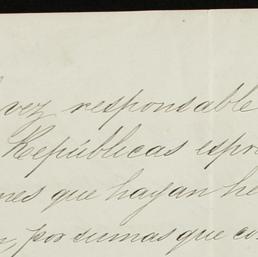 vez responsable
Repúblicas espre
nes que hayan he
por sumas que co